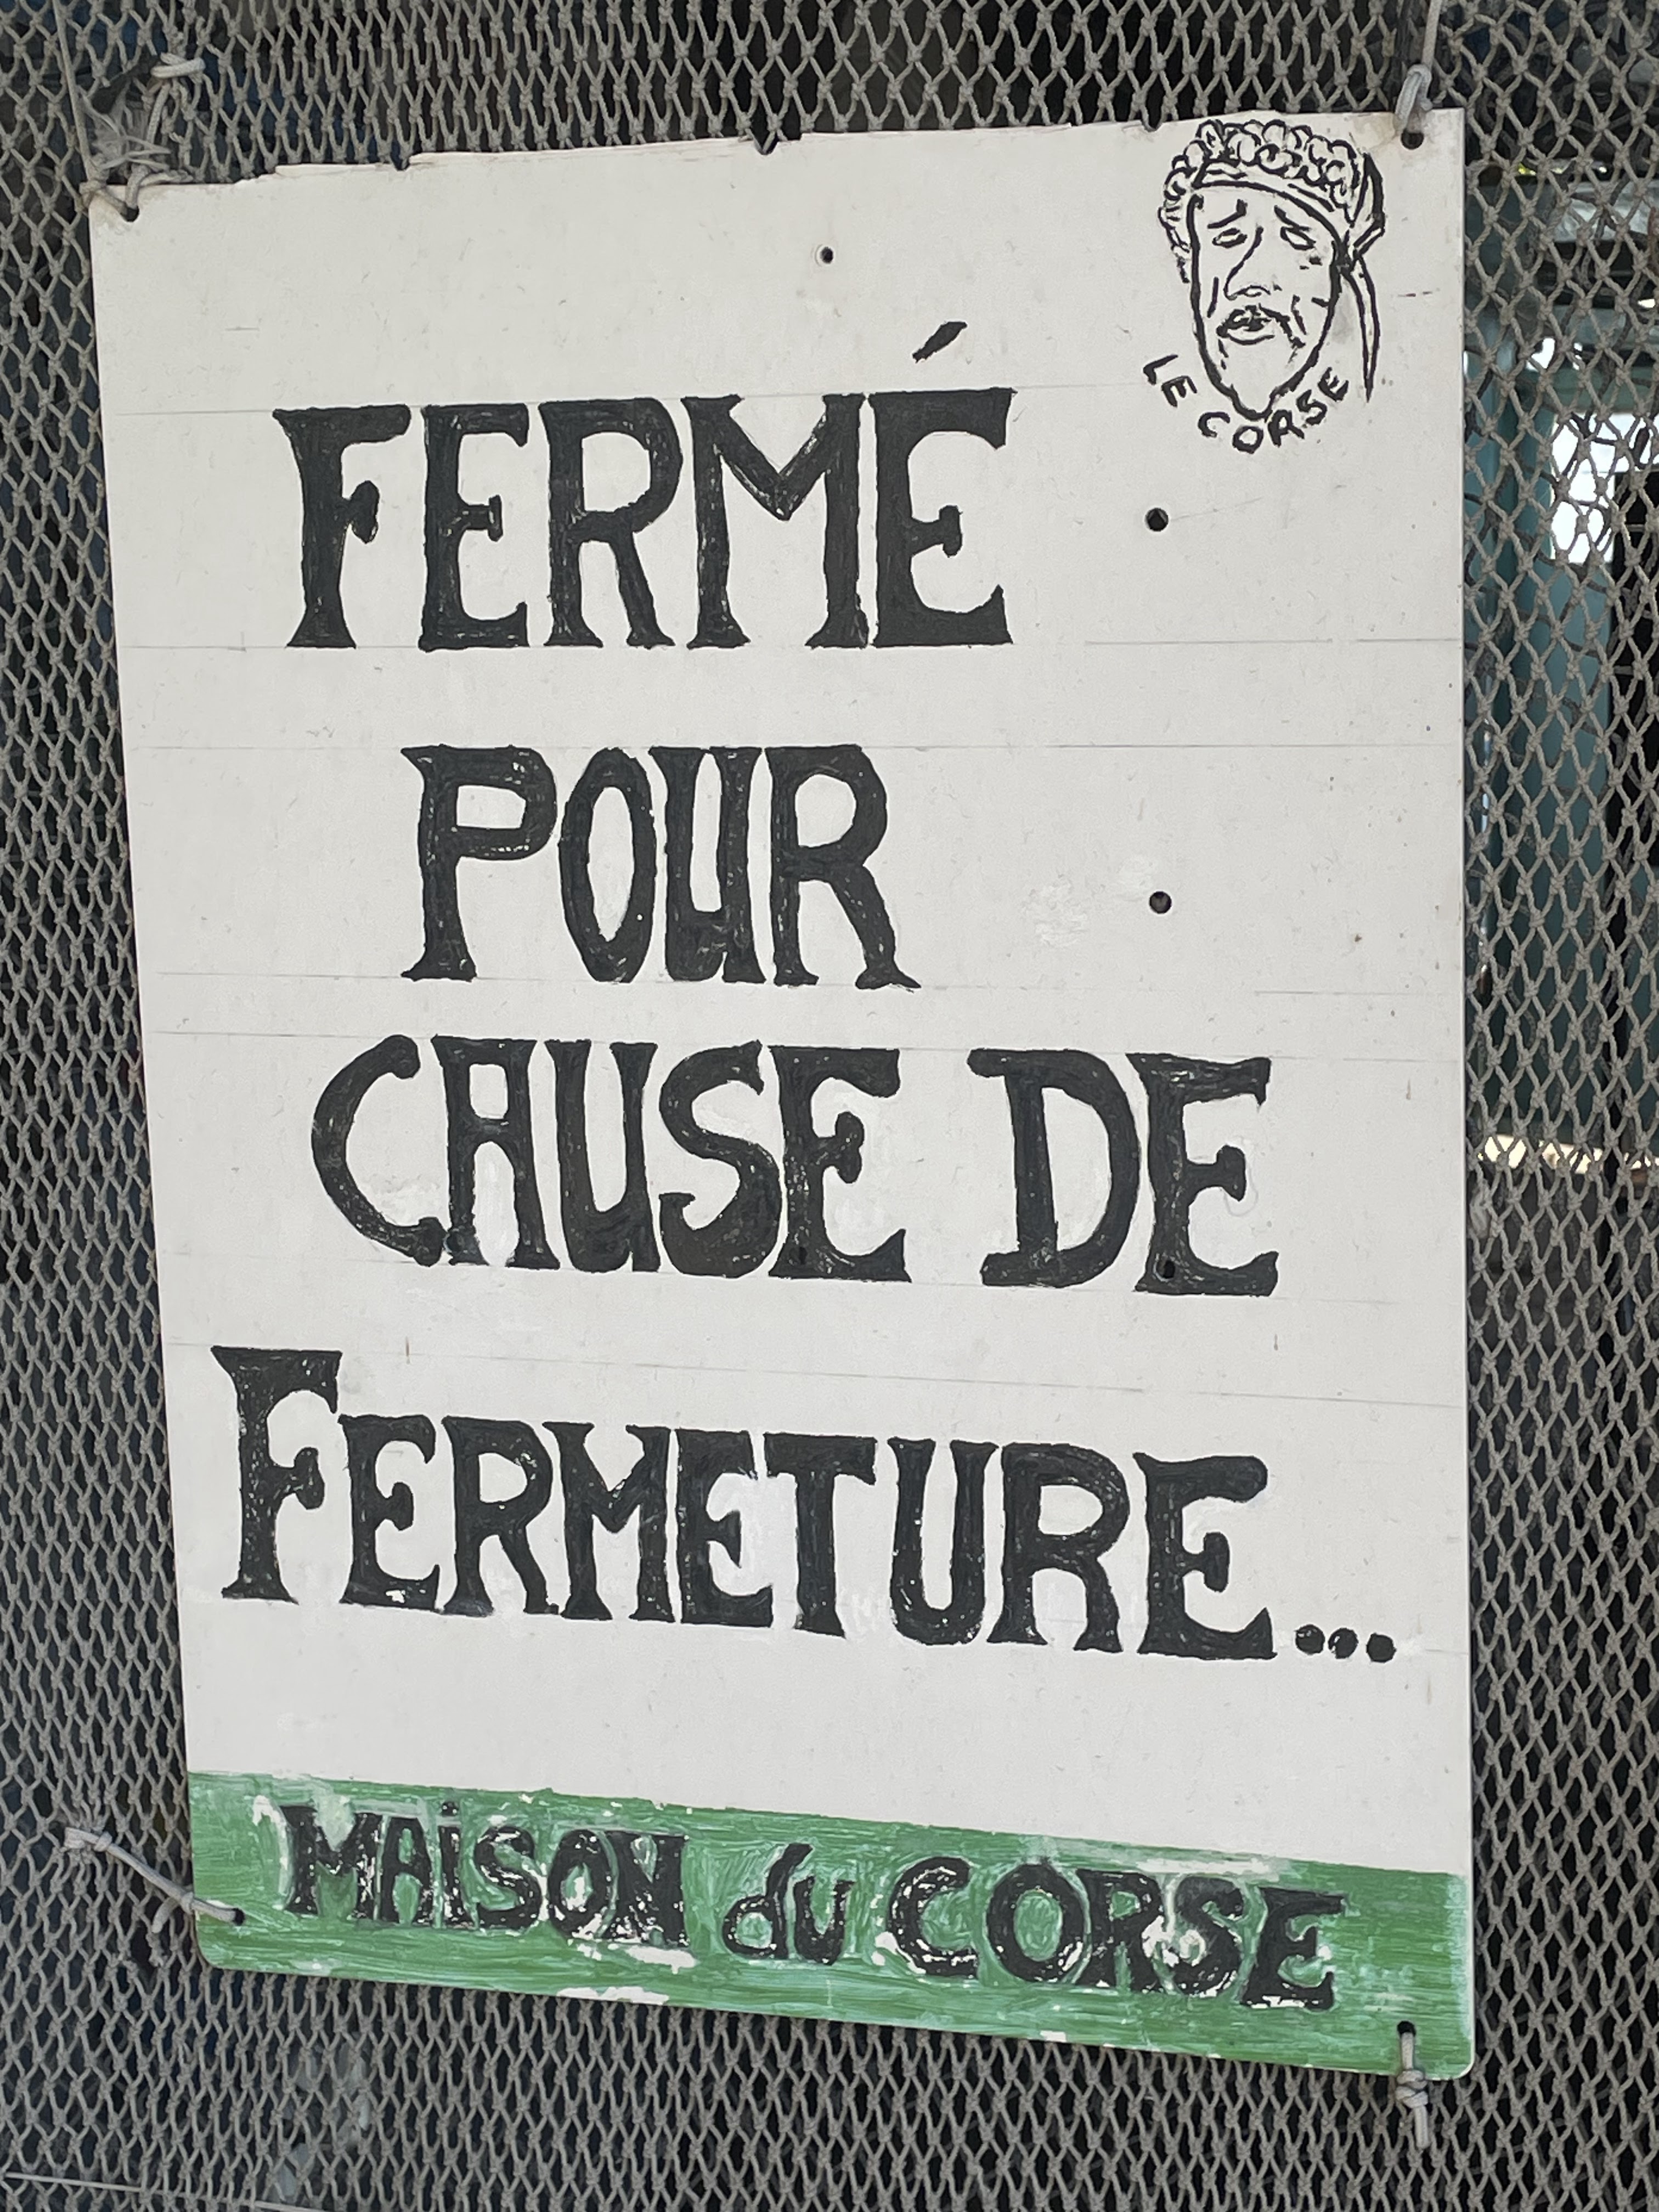 LE CORSE
FERMÉ
POUR
CAUSE DE
FERMETURE...
MAiSON du CORSE